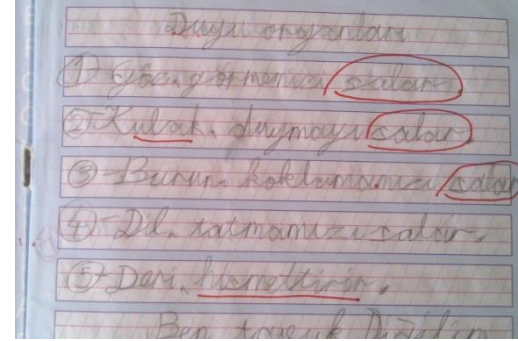 Duyu organları
1- Göz, görmemizi salar.
2- Kulak, duymayı salar.
3- Burun, koklamamızı salar
4- Dil, tatmamızı salar.
5- Deri, hismettirir.
Ben